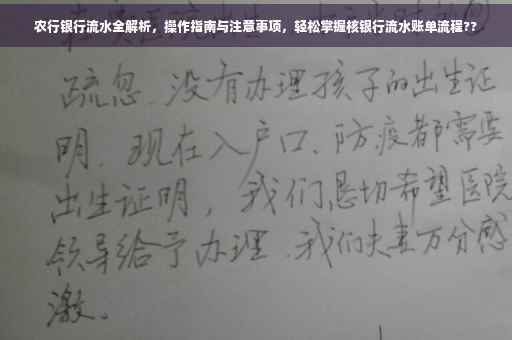 农行银行流水全解析，操作指南与注意事项，轻松掌握核银行流水账单流程??
疏忽，没有办理孩子的出生证
明，现在入户口、防疫都需要
出生证明，我们恳切希望医院
领导给予办理，我们夫妻万分感
激。